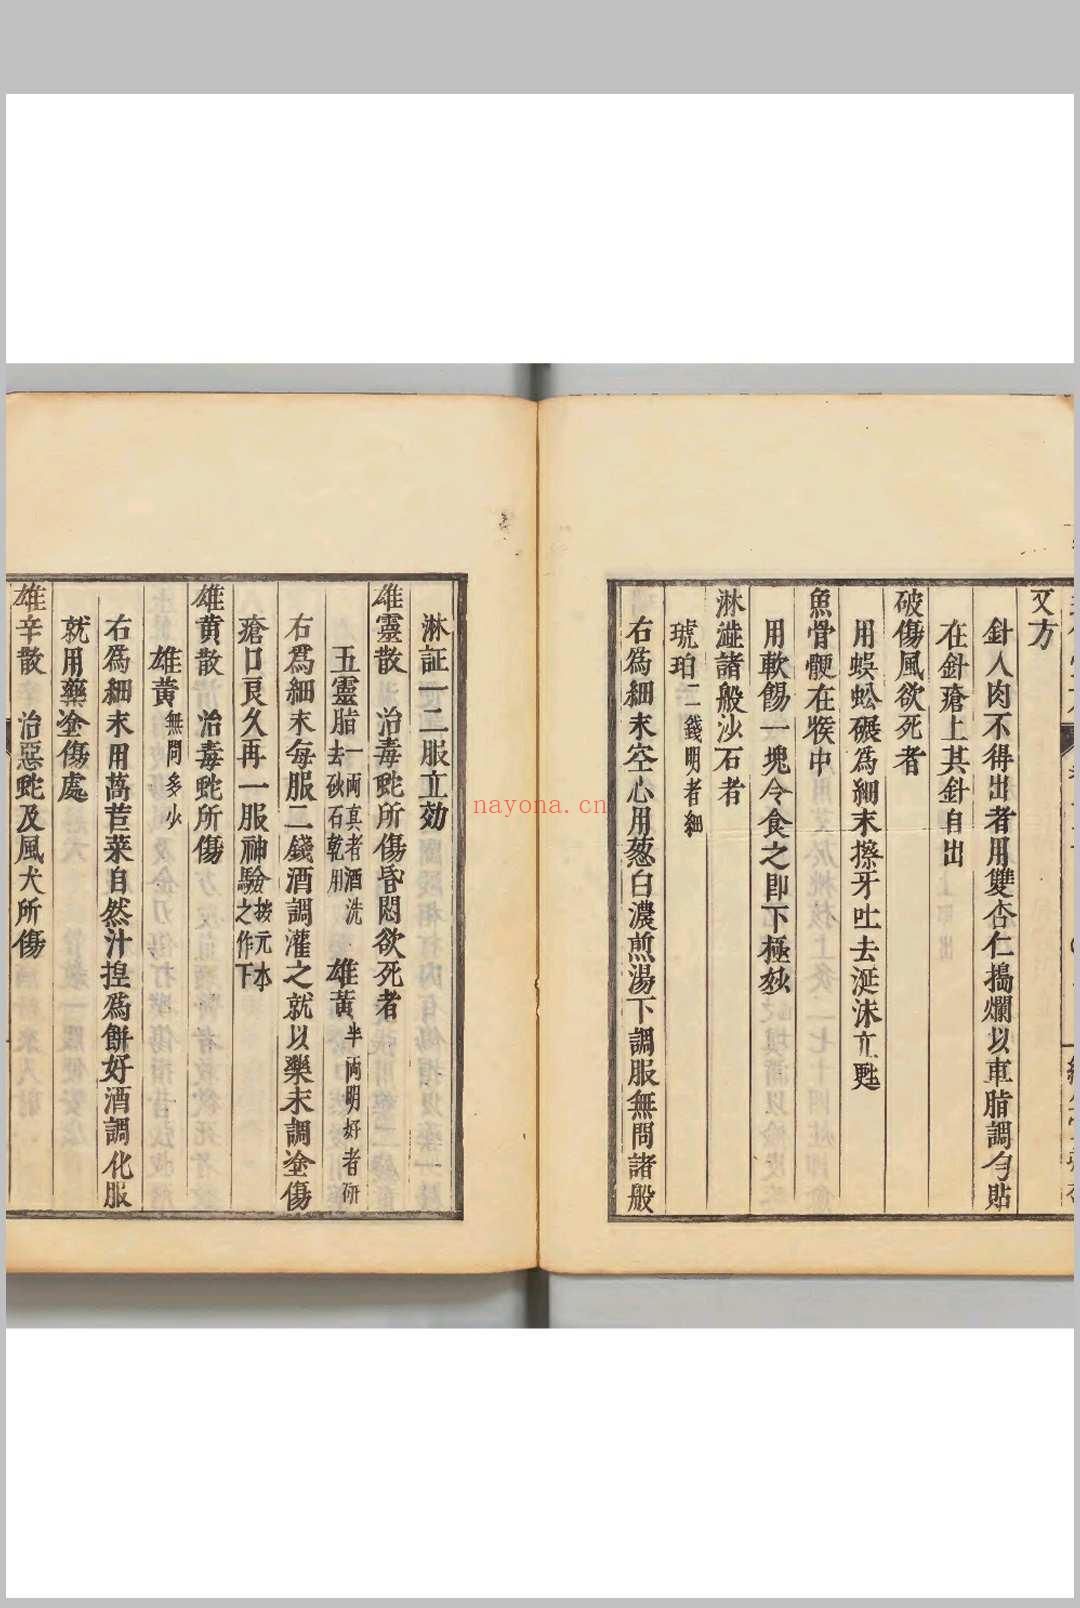 又方
針入肉不得出者用雙杏仁搗爛以車脂調勻貼
在針瘡上其針自出
破傷風欲死者
用蜈蚣碾為細末擦牙吐去涎沫立甦
魚骨骾在喉中
用軟餳一塊令食之即下極妙
淋澁諸般沙石者
琥珀二錢明者細
右為細末空心用葱白濃煎湯下調服無問諸般
淋証一二服立効
雄靈散 治毒虵所傷昏悶欲死者
五靈脂一両真者酒洗去砂石乾用 雄黃半両明好者研
右為細末每服二錢酒調灌之就以藥末調塗傷
瘡口良久再一服神驗之按元本作下
雄黄散 治毒虵所傷
雄黃無問多少
右為細末用萵苣菜自然汁揑為餅好酒調化服
就用藥塗傷處
雄辛散 治惡虵及風犬所傷
nayona.cn